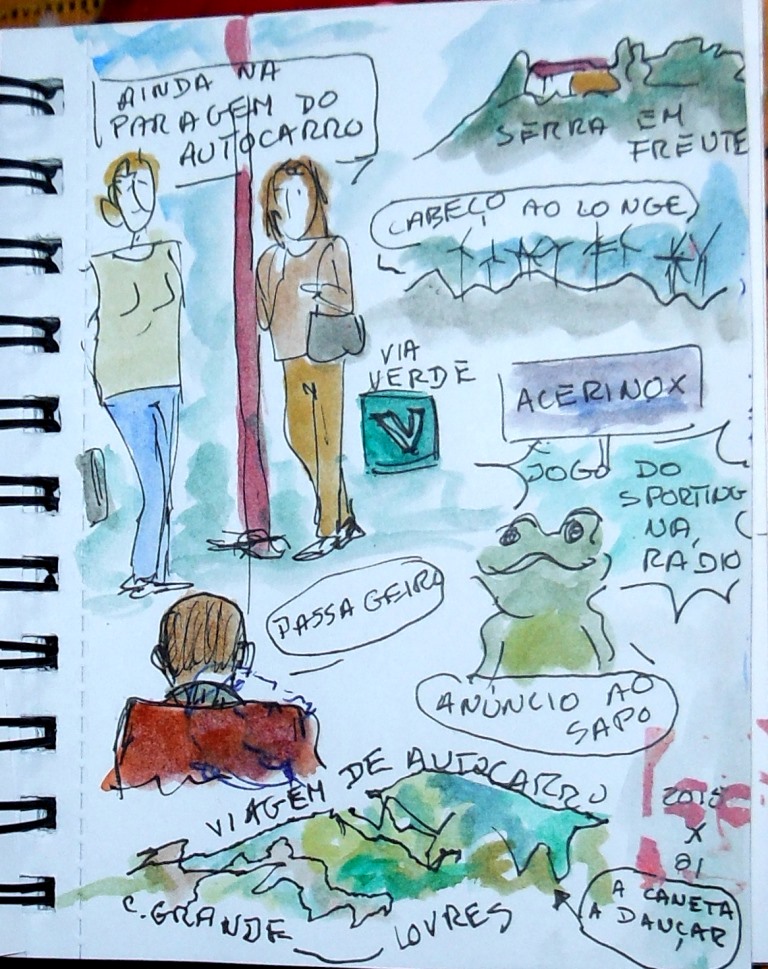 AINDA NA
PARAGEM DO
AUTOCARRO
SERRA EM
FRENTE
CABEÇO AO LONGE
VIA
VERDE
V
ACERINOX
JOGO DO
SPORTING
NA
RÁDIO
PASSAGEIRO
ANÚNCIO AO
SAPO
VIAGEM DE AUTOCARRO
C. GRANDE LOURES
X
A CANETA
A DANÇAR